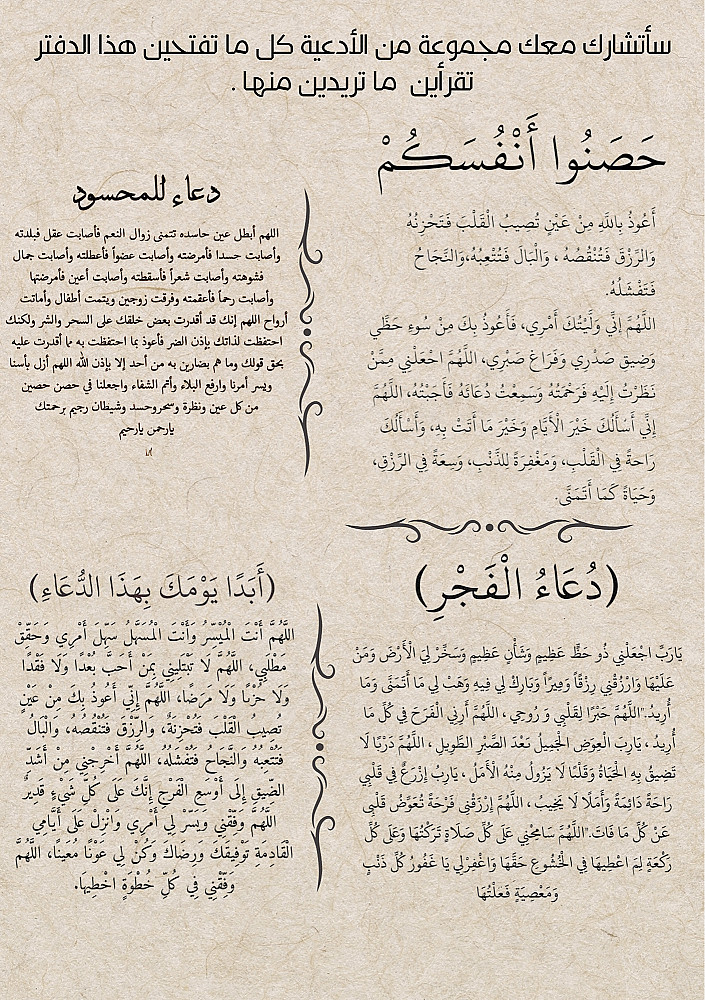 سأتشارك معك مجموعة من الأدعية كل ما تفتحين هذا الدفتر
تقرأين ما تريدين منها .
حَصَنُوا أَنْفُسَكُمْ
أَعُوذُ بِاللَّهِ مِنْ عَيْنٍ تُصِيبُ الْقَلْبَ فَتَحْزِنُهُ
وَالرِّزْقَ فَتُنْقُصُهُ ، وَالْبَالَ فَتُتْعِبُهُ،وَالنَّجَاحُ
فَتَفْشَلُهُ.
اللَّهُمَّ إِنَّي وَلَّيْتُكَ أَمْرِي، فَأَعُوذُ بِكَ مِنْ سُوءِ حَظَّي
وَضِيقِ صَدْرِي وَفَرَاغَ صَبْرِي، اللَّهُمَّ اجْعَلْنِي مِمَّنْ
نَظَرْتُ إِلَيْهِ فَرَحْمَتُهُ وَسَمِعْتُ دُعَائَهُ فَأَجَبْتُهُ، اللَّهُمَّ
إِنِّي أَسْأَلُكَ خَيْرَ الْأَيَّامِ وَخَيْرَ مَا أَتَتْ بِهِ، وَأَسْأَلُكَ
رَاحَةً فِي الْقَلْبِ، وَمَغْفِرَةً لِلذَّنْبِ، وَسِعَةً فِي الرِّزْقِ،
وَحَيَاةً كَمَا أَتَمَنَّى.
دعاء للمحسود
اللهم أبطل عين حاسده تتمنى زوال النعم فأصابت عقل فبلدته
وأصابت حسدا فأمرضته وأصابت عضواً فأعطلته وأصابت جمال
فشوهته وأصابت شعراً فأسقطته وأصابت أعين فأمرضتها
وأصابت رحماً فأعقمته وفرقت زوجين ويتمت أطفال وأماتت
أرواح اللهم إنك قد أقدرت بعض خلقك على السحر والشر ولكنك
احتفظت لذاتك بإذن الضر فأعوذ بما احتفظت به ما أقدرت عليه
بحق قولك وما هم بضارين به من أحد إلا بإذن الله اللهم أزل بأسنا
ويسر أمرنا وارفع البلاء وأتم الشفاء واجعلنا في حصن حصين
من كل عين ونظرة وسحروحسد وشيطان رجيم برحمتك
يارحمن يارحيم
(دُعَاءُ الْفَجْرِ)
يَارَبِّ اجْعَلْنِي ذُو حَظُّ عَظِيمٍ وَشَأْنِ عَظِيمٍ وَسَخِّرْ لِيَ الْأَرْضَ وَمَنْ
عَلَيْهَا وَارْزُقْنِي رِزْقًا وَفِيرًا وَبَارِكْ لِي فِيهِ وَهَبْ لِي مَا أَتَمَنَّى وَمَا
أُرِيدُ."اللَّهُمَّ حَبْرًا لِقَلْبِي وَ رُوحِي ، اللَّهُمَّ أَرِنِي الْفَرَحَ فِي كُلِّ مَا
أُرِيدُ ، يَارَبِّ الْعِوَضَ الْجَمِيلُ بَعْدَ الصَّبْرِ الطَّوِيلِ ، اللَّهُمَّ دَرْبًا لَا
تَضِيقُ بِهِ الْحَيَاةُ وَقَلْبًا لَا يَزُولُ مِنْهُ الْأَمَلُ ، يَارَبُّ إِزْرَعْ فِي قَلْبِي
رَاحَةً دَائِمَةً وَأَمَلًا لَا يَخِيبُ ، اللَّهُمَّ إِرْزُقْنِي فَرْحَةً تُعَوِّضُ قَلْبِي
عَنْ كُلِّ مَا فَاتَ."اللَّهُمَّ سَامِحْنِي عَلَى كُلِّ صَلَاةٍ تَرَكْتُهَا وَعَلَى كُلِّ
رَكْعَةٍ لِمَ اعْطِيهَا فِي الْخُشُوعِ حَقَّهَا وَاغْفِرْلِي يَا غَفُورُ كُلَّ ذَنْبٍ
وَمَعْصِيَةٍ فَعَلْتُهَا
(أَبَدًا يَوْمَكَ بِهَذَا الدُّعَاءِ)
اللَّهُمَّ أَنْتَ الْمُيَسِّرُ وَأَنْتَ الْمُسَهِّلُ سَهِّلْ أَمْرِي وَحَقِّقْ
مَطْلَبِي، اللَّهُمَّ لَا تَبْتَلِينِي بِمَنْ أَحَبَّ بُعْدًا وَلَا فَقْدًا
وَلَا حُزْنًا وَلَا مَرَضًا، اللَّهُمَّ إِنِّي أَعُوذُ بِكَ مِنْ عَيْنٍ
تُصِيبُ الْقَلْبَ فَتُحْزِنَهُ، وَالرِّزْقَ فَتُنْقُصُهُ، وَالْبَالُ
فَتُتْعِبُهُ وَالنَّجَاحُ فَتُفْشَلُهُ، اللَّهُمَّ أَخْرِجْنِي مِنْ أَشَدِّ
الضِّيقِ إِلَى أَوْسَعِ الْفَرَجِ إِنَّكَ عَلَى كُلِّ شَيْءٍ قَدِيرٌ
اللَّهُمَّ وَفِّقْنِي وَيَسِّرْ لِي أَمْرِي وَانْزِلْ عَلَى أَيَّامِي
الْقَادِمَةِ تَوْفِيقَكَ وَرِضَاكَ وَكُنْ لِي عَوْنًا مُعِينًا، اللَّهُمَّ
وَفِّقْنِي فِي كُلِّ خُطْوَةٍ اخْطِيهَا.